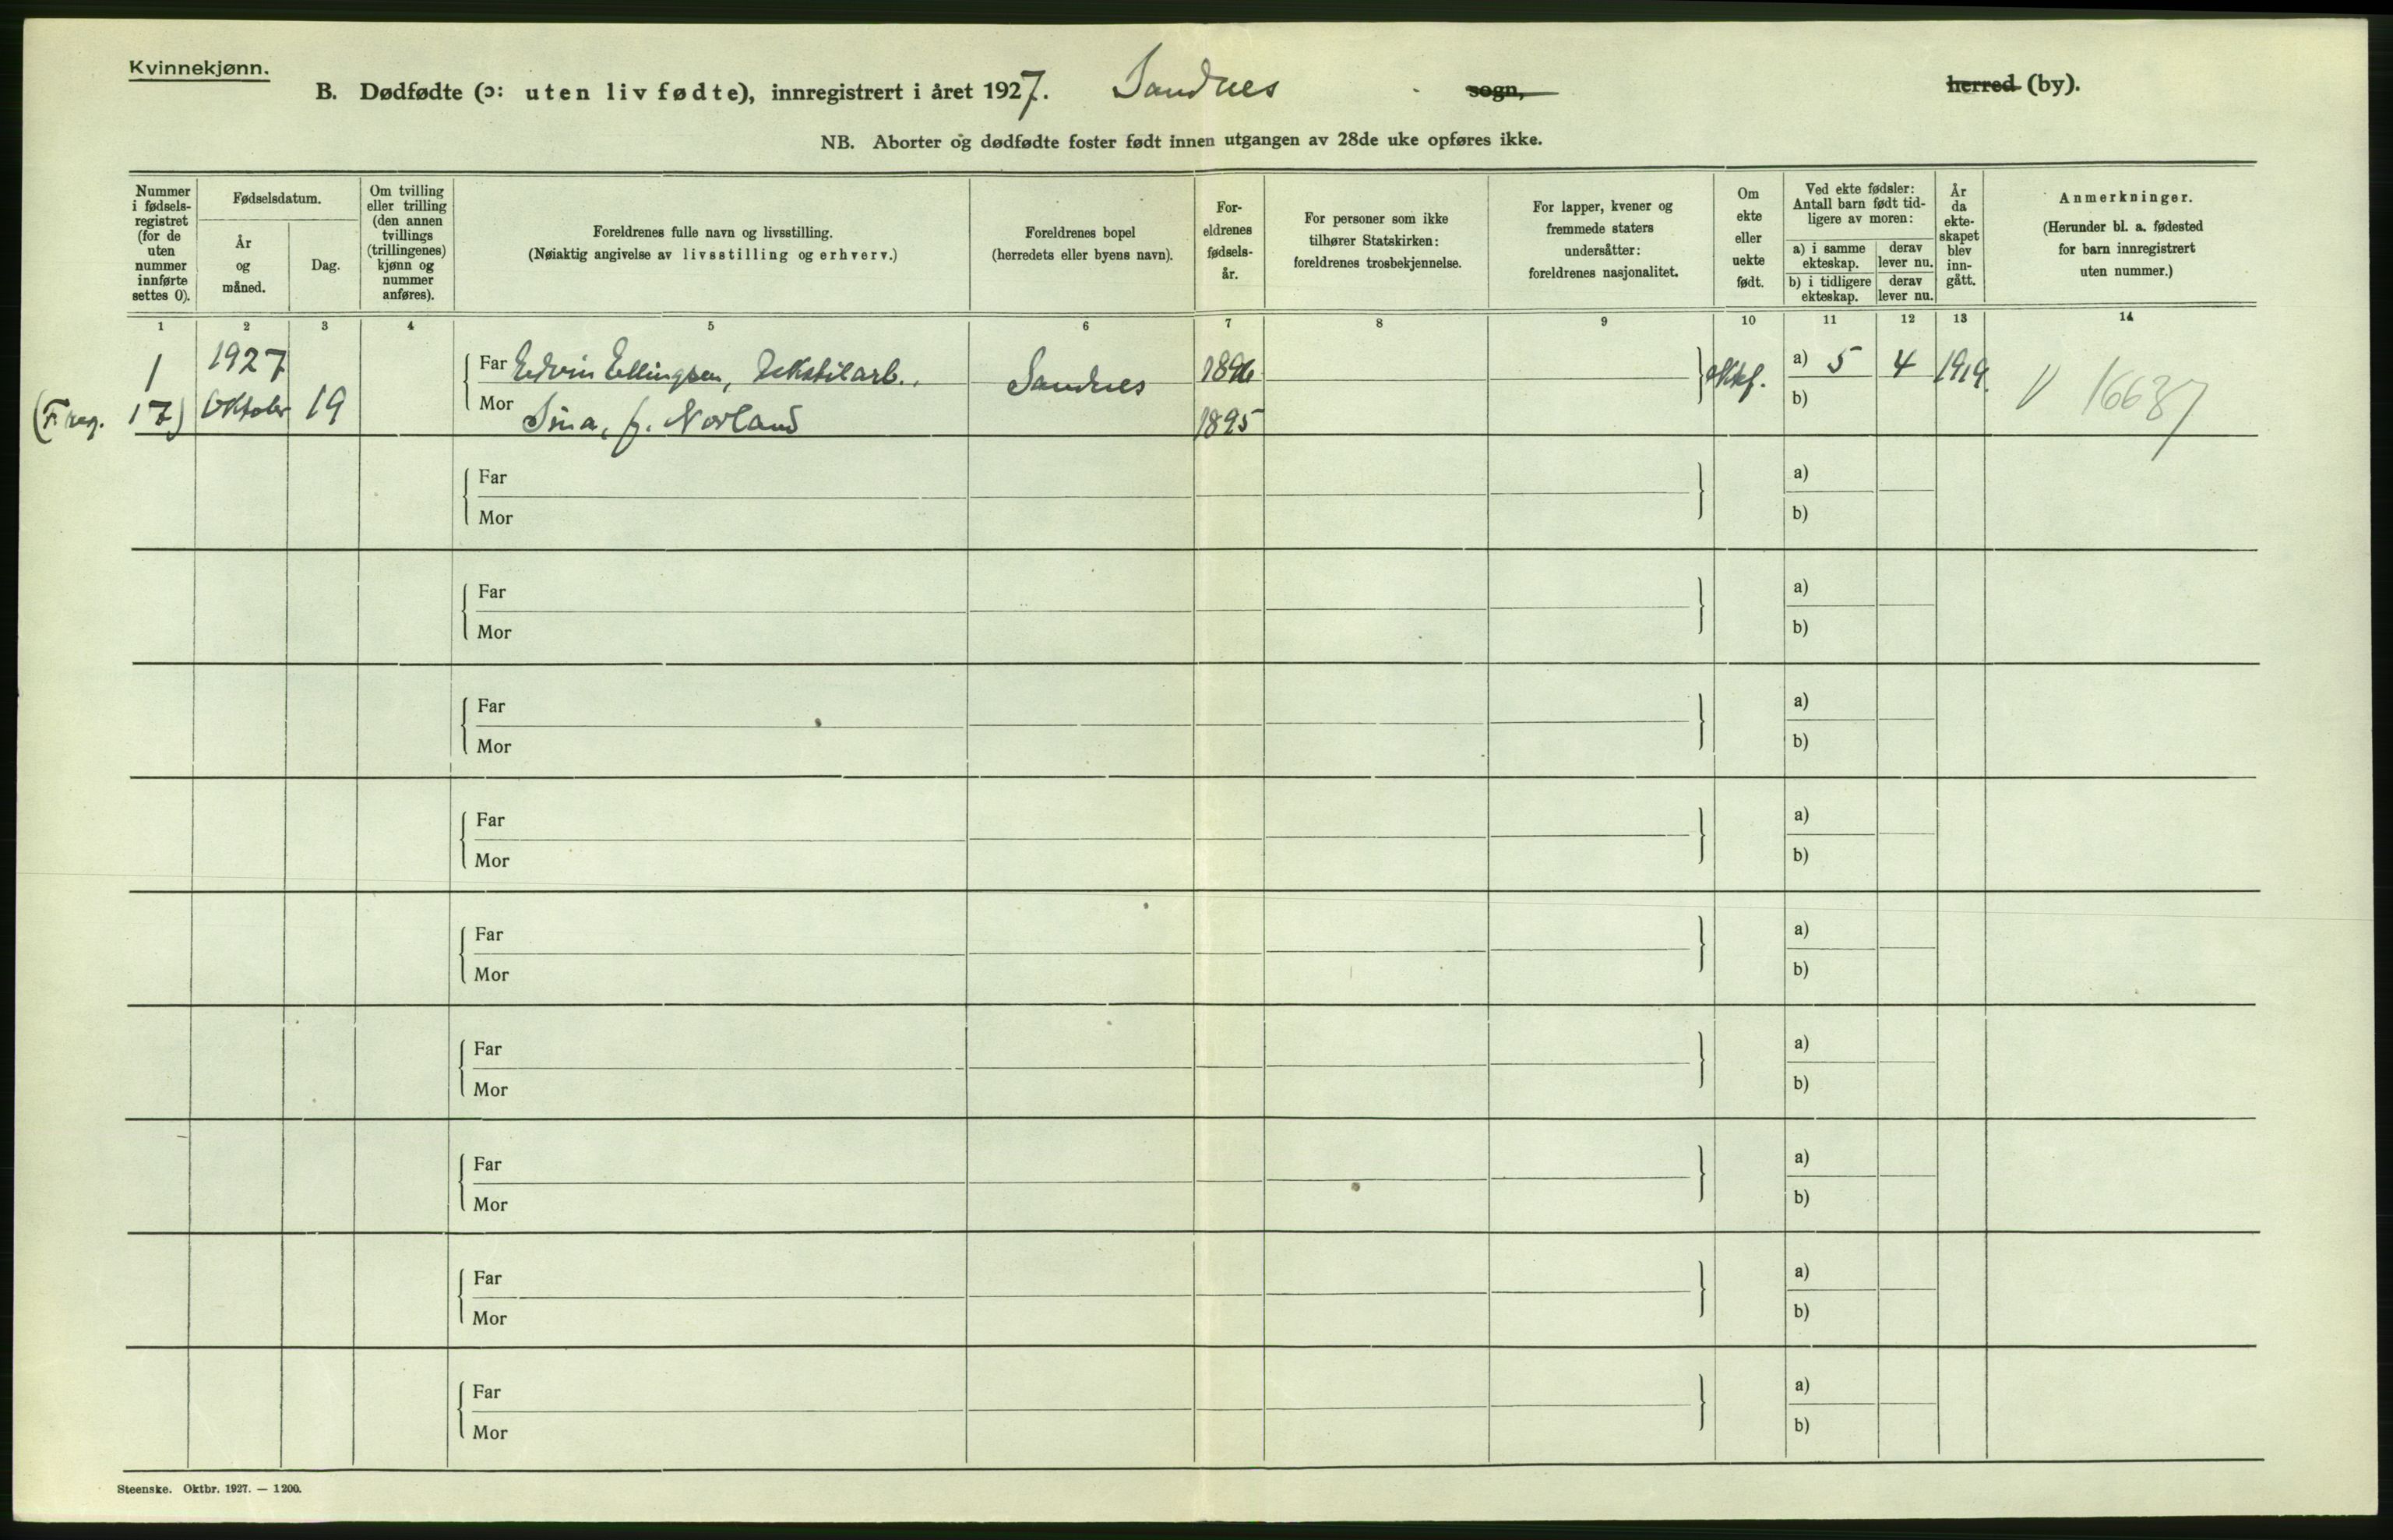 Kvinnekjønn.
B. Dødfødte (ɔ: uten liv fødte), innregistrert i året 1927. Sandnes sogn, herred (by).
NB. Aborter og dødfødte foster født innen utgangen av 28de uke opføres ikke.
Nummer i fødsels-registret (for de uten nummer innførte settes 0).
Fødselsdatum.
År og måned.
Dag.
Om tvilling eller trilling (den annen tvillings (trillingenes) kjønn og nummer anføres).
Foreldrenes fulle navn og livsstilling.
(Nøiaktig angivelse av livsstilling og erhverv.)
Foreldrenes bopel
(herredets eller byens navn).
For-eldrenes fødsels-år.
For personer som ikke tilhører Statskirken: foreldrenes trosbekjennelse.
For lapper, kvener og fremmede staters undersåtter: foreldrenes nasjonalitet.
Om ekte eller uekte født.
Ved ekte fødsler: Antall barn født tid-ligere av moren:
a) i samme ekteskap.
derav lever nu.
b) i tidligere ekteskap.
derav lever nu.
År da ekte-skapet blev inn-gått.
Anmerkninger.
(Herunder bl. a. fødested for barn innregistrert uten nummer.)
1 2 3 4 5 6 7 8 9 10 11 12 13 14
1 1927 Far Edvin Ellingsen, Tekstilarb., Sandnes 1896 a) 5 4 1919. V 16637
(F reg. 17) Oktober 19 Mor Sina, f. Norland 1895 b)
Far a)
Mor b)
Far a)
Mor b)
Far a)
Mor b)
Far a)
Mor b)
Far a)
Mor b)
Far a)
Mor b)
Far a)
Mor b)
Far a)
Mor b)
Far a)
Mor b)
Steenske. Oktbr. 1927. — 1200.